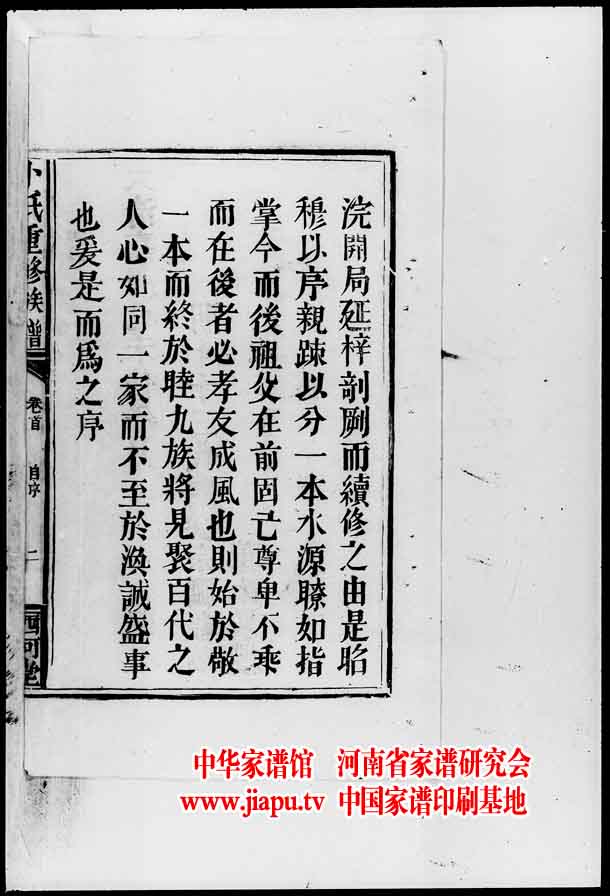 浣開局延梓剞劂而續修之由是昭
穆以序親疎以分一本水源瞭如指
掌今而後祖父在前固已尊卑不乘
而在後者必孝友成風也則始於敬
一本而終於睦九族將見聚百代之
人心如同一家而不至於渙誠盛事
也爰是而爲之序
卜氏重修族譜
卷首
自序
二
西河堂
中华家谱馆 河南省家谱研究会
www.jiapu.tv 中国家谱印刷基地